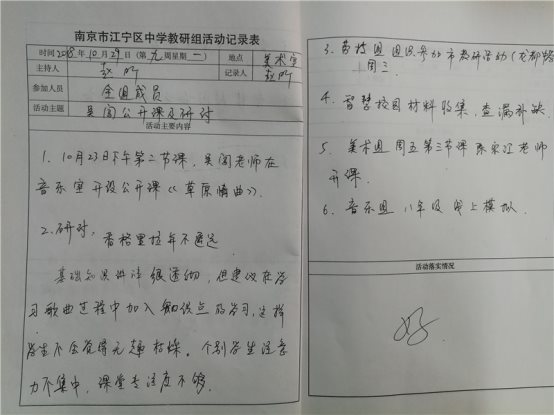 南京市江宁区中学教研组活动记录表
时间 2018年10月29日(第九周星期一) 地点 美术室
主持人 赵昕 记录人 赵昕
参加人员 全组成员
活动主题 吴闯公开课及研讨
活动主要内容
1. 10月23日下午第二节课,吴闯老师在
音乐室开设公开课《草原情曲》.
2. 研讨,
香格里拉并不遥远
基础知识讲译很透彻,但建议在学
习歌曲过程中加入知识点的学习,这样
学生不会觉得无趣枯燥。个别学生注意
力不集中,课堂专注度不够.
3. 劳技组组织参加市教研活动(
周三.
4. 智慧校园材料收集,查漏补缺.
5. 美术组周五第三节课 老师
开课.
6. 音乐组 八年级线上模拟.
活动落实情况
好